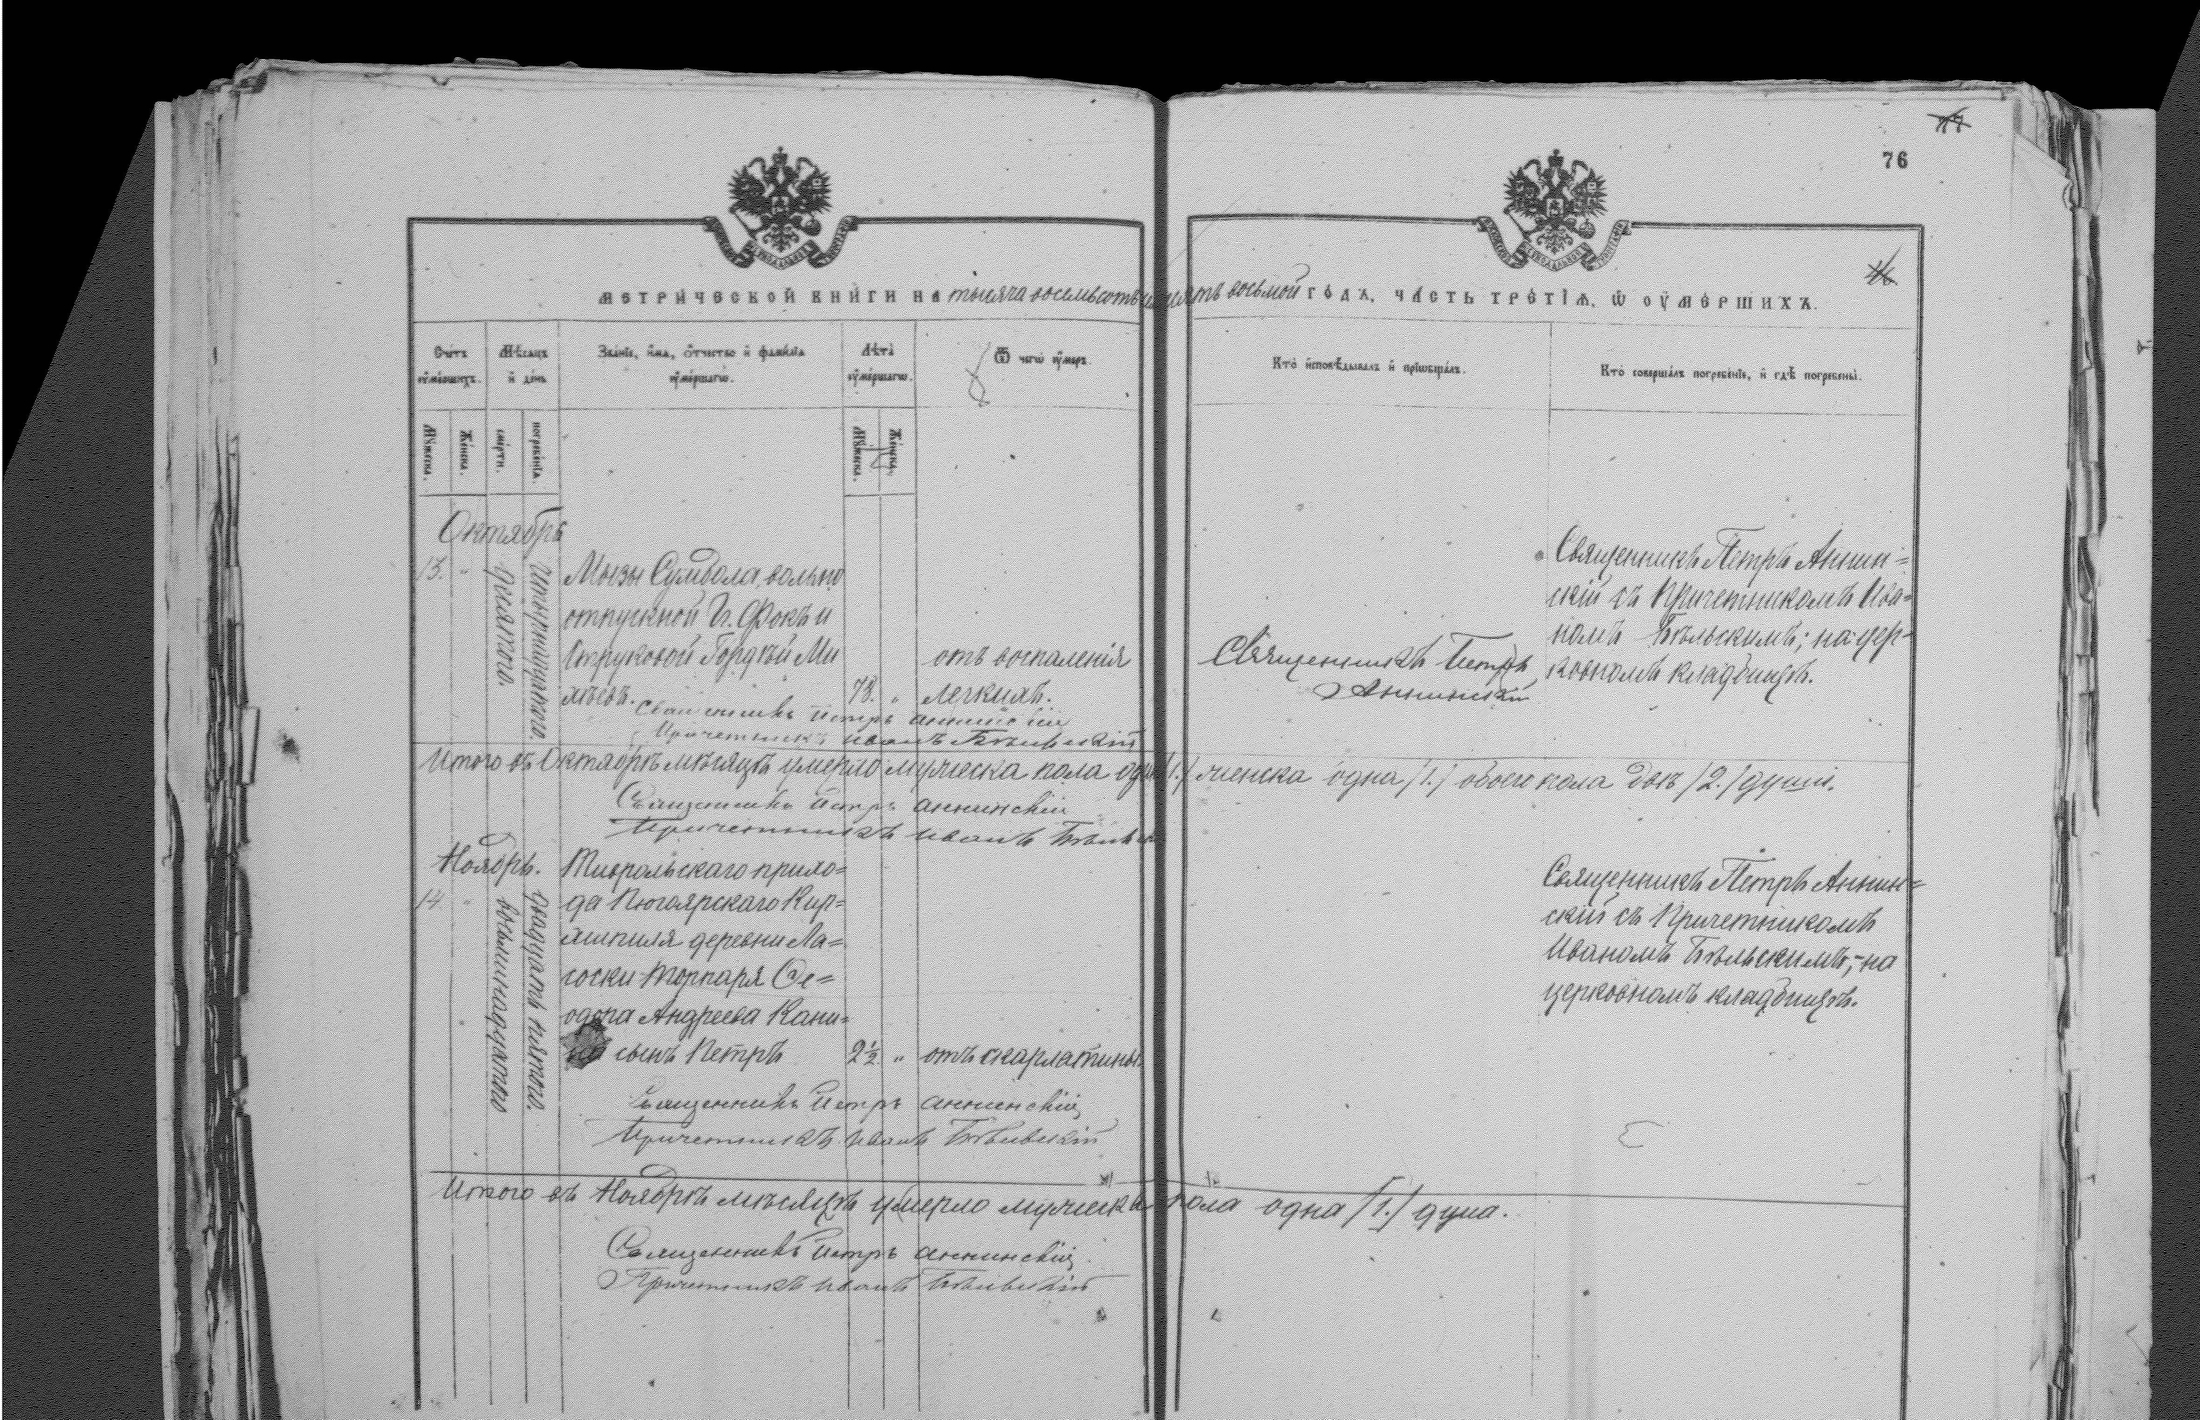 76
МЕТРИЧЕСКОЙ КНИГИ НА тысяча восемьсотъ восьмой ГОДЪ, ЧАСТЬ ТРЕТІЯ, Ѿ ОУМЕРШИХЪ.
Счетъ оумершихъ.
Мѣсяцъ и день
Званіе, имя, отчество и фамилія оумершагѡ.
Лѣта оумершагѡ.
Ѿ чегѡ оумеръ.
Кто исповѣдывалъ и пріѡбщалъ.
Кто совершалъ погребеніе, и гдѣ погребены.
Мужеска.
Женска.
смерти.
погребенія.
Мужеска.
Женска.
Октябрь
13. "
десятаго.
четырнадцатаго.
Мызы Сумбола, вольно
отпускной Г. Фокъ и
Струковой Гордѣй Ми
хѣевъ.
73. "
отъ воспаленія
легкихъ.
Священникъ Петръ
Аннинскій
Священникъ Петръ Аннин=
скій съ Причетникомъ Ива=
номъ Бѣльскимъ; на цер-
ковномъ кладбищѣ.
Священникъ Петръ Аннинскій
Причетникъ Иванъ Бѣльскій
Итого въ Октябрѣ мѣсяцѣ умерло мужеска пола одна /1./ женска одна /1./ обоего пола двѣ /2./ души.
Священникъ Петръ Аннинскій
Причетникъ Иванъ
Ноябрь.
14 "
восьмнадцатаго
двадцать пятаго.
прихо=
да Пюгоярскаго Кир=
хшпиля деревни Ла=
соски торпаря Ѳе=
одора Андреева Кани=
сынъ Петръ
2½. "
отъ скарлатины.
Священникъ Петръ Аннин=
скій съ Причетникомъ
Иваномъ Бѣльскимъ;-на
церковномъ кладбищѣ.
Священникъ Петръ Аннинскій
Причетникъ Иванъ Бѣльскій
Итого въ Ноябрѣ мѣсяцѣ умерло мужеска пола одна /1./ душа.
Священникъ Петръ Аннинскій
Причетникъ Иванъ Бѣльскій